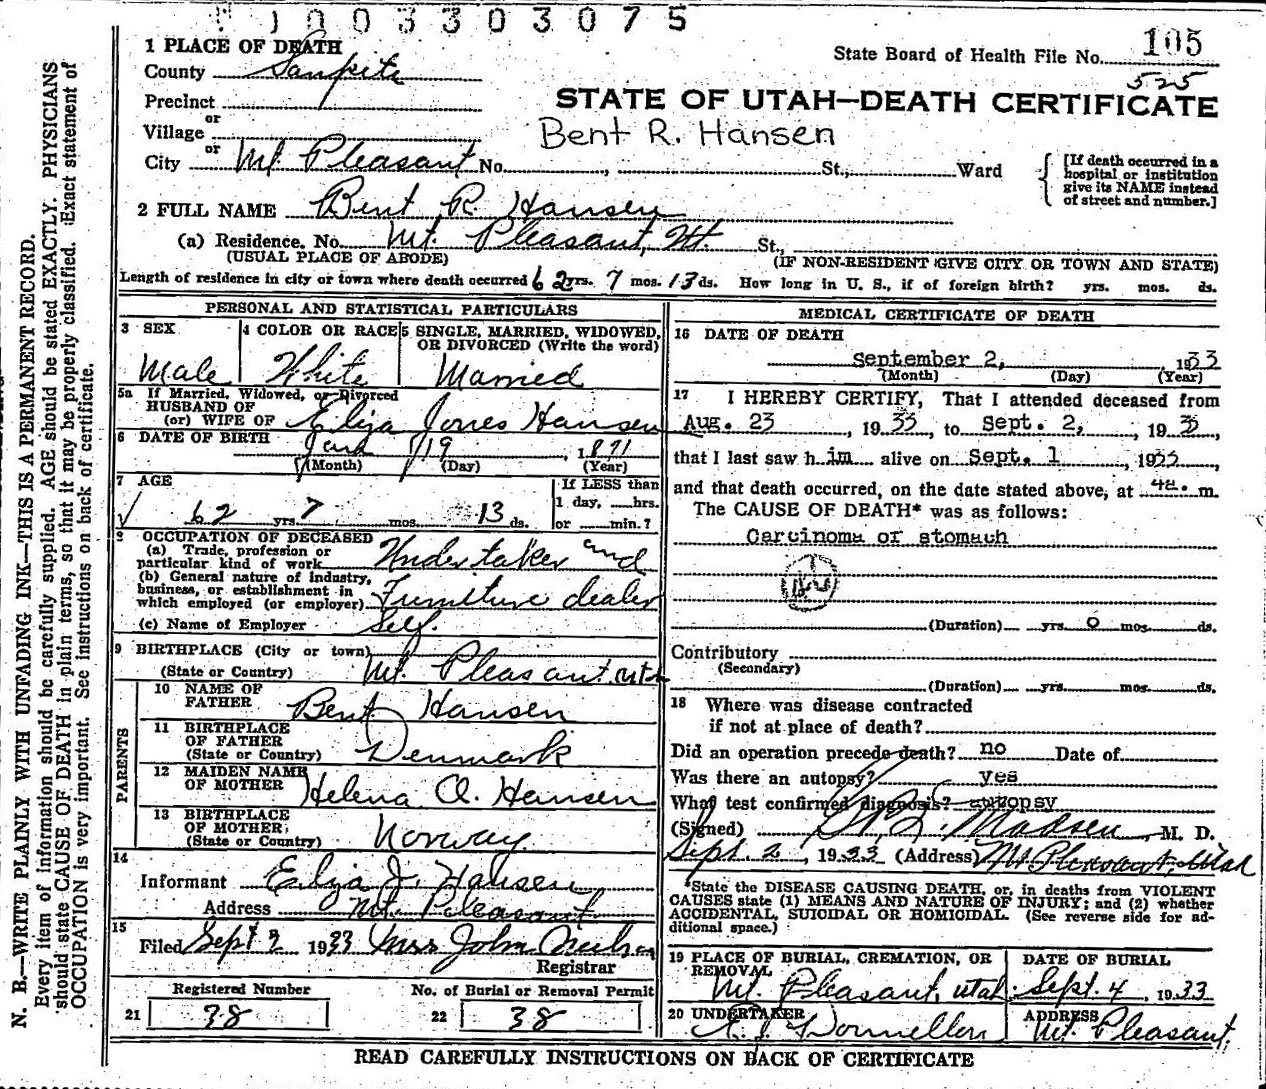 1003303075
1 PLACE OF DEATH
State Board of Health File No. 105
County Sanpete
525
Precinct
STATE OF UTAH—DEATH CERTIFICATE
or
Village
Bent R. Hansen
or
City Mt. Pleasant No. , St., Ward
[If death occurred in a
hospital or institution
give its NAME instead
of street and number.]
2 FULL NAME Bent R. Hansen
(a) Residence. No. Mt. Pleasant, Ut. St.,
(USUAL PLACE OF ABODE) (IF NON-RESIDENT GIVE CITY OR TOWN AND STATE)
Length of residence in city or town where death occurred 62 yrs. 7 mos. 13 ds. How long in U. S., if of foreign birth? yrs. mos. ds.
PERSONAL AND STATISTICAL PARTICULARS
3 SEX 4 COLOR OR RACE 5 SINGLE, MARRIED, WIDOWED,
OR DIVORCED (Write the word)
Male White Married
5a If Married, Widowed, or Divorced
HUSBAND OF
(or) WIFE OF Eliza Jones Hansen
6 DATE OF BIRTH
Jan 19, 1871
(Month) (Day) (Year)
7 AGE
If LESS than
1 day, hrs.
62 yrs. 7 mos. 13 ds. or min.?
OCCUPATION OF DECEASED
(a) Trade, profession or
particular kind of work Undertaker and
(b) General nature of industry,
business, or establishment in
which employed (or employer) Furniture dealer
(c) Name of Employer Self.
9 BIRTHPLACE (City or town)
(State or Country) Mt. Pleasant. Utah
PARENTS
10 NAME OF
FATHER Bent Hansen
11 BIRTHPLACE
OF FATHER
(State or Country) Denmark
12 MAIDEN NAME
OF MOTHER Helena O. Hansen
13 BIRTHPLACE
OF MOTHER
(State or Country) Norway.
14
Informant Eliza J. Hansen
Address Mt. Pleasant
15
Filed Sept 1933 Mrs John
Registrar
Registered Number No. of Burial or Removal Permit
21 38 22 38
MEDICAL CERTIFICATE OF DEATH
16 DATE OF DEATH
September 2, 1933
(Month) (Day) (Year)
17 I HEREBY CERTIFY, That I attended deceased from
Aug. 23, 1933, to Sept. 2, 1933,
that I last saw h im alive on Sept. 1, 1933
and that death occurred, on the date stated above, at 4a. m.
The CAUSE OF DEATH* was as follows:
Carcinoma of stomach
(Duration) yrs. 0 mos. ds.
Contributory
(Secondary)
(Duration) yrs. mos. ds.
18 Where was disease contracted
if not at place of death?
Did an operation precede death? no Date of
Was there an autopsy? yes
What test confirmed diagnosis? autopsy
(Signed) Madsen, M. D.
Sept. 2, 1933 (Address) Mt Pleasant, Utah
*State the DISEASE CAUSING DEATH, or, in deaths from VIOLENT
CAUSES state (1) MEANS AND NATURE OF INJURY; and (2) whether
ACCIDENTAL, SUICIDAL OR HOMICIDAL. (See reverse side for ad-
ditional space.)
19 PLACE OF BURIAL, CREMATION, OR
REMOVAL
Mt. Pleasant, Utah.
DATE OF BURIAL
Sept. 4, 1933
20 UNDERTAKER
ADDRESS
Mt. Pleasant.
READ CAREFULLY INSTRUCTIONS ON BACK OF CERTIFICATE
N. B.—WRITE PLAINLY WITH UNFADING INK—THIS IS A PERMANENT RECORD.
Every item of information should be carefully supplied. AGE should be stated EXACTLY. PHYSICIANS
should state CAUSE OF DEATH in plain terms, so that it may be properly classified. Exact statement of
OCCUPATION is very important. See instructions on back of certificate.